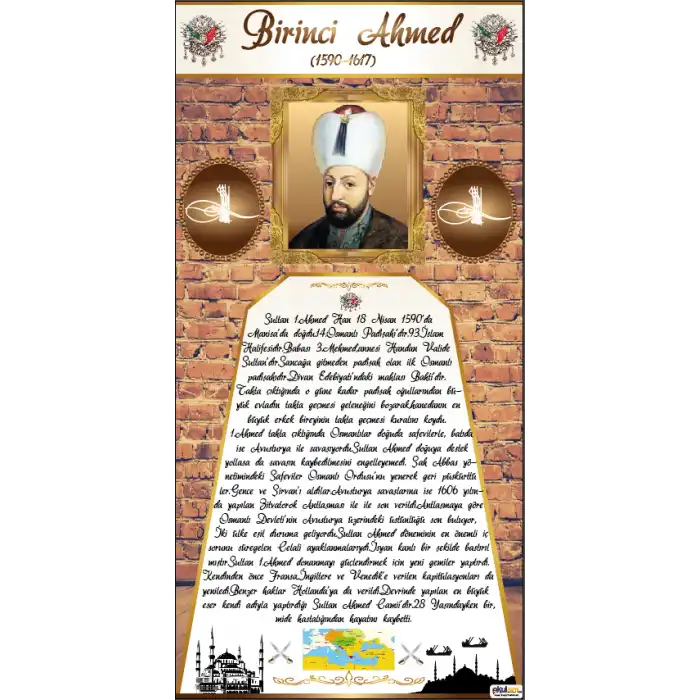 Birinci Ahmed
(1590-1617)
Sultan 1.Ahmed Han 18 Nisan 1590'da
Manisa'da doğdu.14.Osmanlı Padişahı'dır.93.İslam
Halifesidir.Babası 3.Mehmed,annesi Handan Valide
Sultan'dır.Sancağa gitmeden padişah olan ilk Osmanlı
padişahıdır.Divan Edebiyatı'ndaki mahlası Bahti'dir.
Tahta çıktığında o güne kadar padişah oğullarından bü-
yük evladın tahta geçmesi geleneğini bozarak,hanedanın en
büyük erkek bireyinin tahta geçmesi kuralını koydu.
1.Ahmed tahta çıktığında Osmanlılar doğuda safevilerle, batıda
ise Avusturya ile savaşıyordu.Sultan Ahmed doğuya destek
yollasa da savaşın kaybedilmesini engelleyemedi. Şah Abbas yö-
netimindeki Safeviler Osmanlı Ordusu'nu yenerek geri püskürttü
ler.Gence ve Şirvan'ı aldılar.Avusturya savaşlarına ise 1606 yılın-
da yapılan Zitvatorok Antlaşması ile ile son verildi.Antlaşmaya göre
Osmanlı Devleti'nin Avusturya üzerindeki üstünlüğü son buluyor,
İki ülke eşit duruma geliyordu.Sultan Ahmed döneminin en önemli iç
sorunu süregelen Celali ayaklanmalarıydı.İsyan kanlı bir şekilde bastırıl
mıştır.Sultan 1.Ahmed donanmayı güçlendirmek için yeni gemiler yaptırdı.
Kendinden önce Fransa,İngiltere ve Venedik'e verilen kapitülasyonları da
yeniledi.Benzer haklar Hollanda'ya da verildi.Devrinde yapılan en büyük
eser kendi adıyla yaptırdığı Sultan Ahmed Camii'dir.28 Yaşındayken bir,
mide hastalığından hayatını kaybetti.